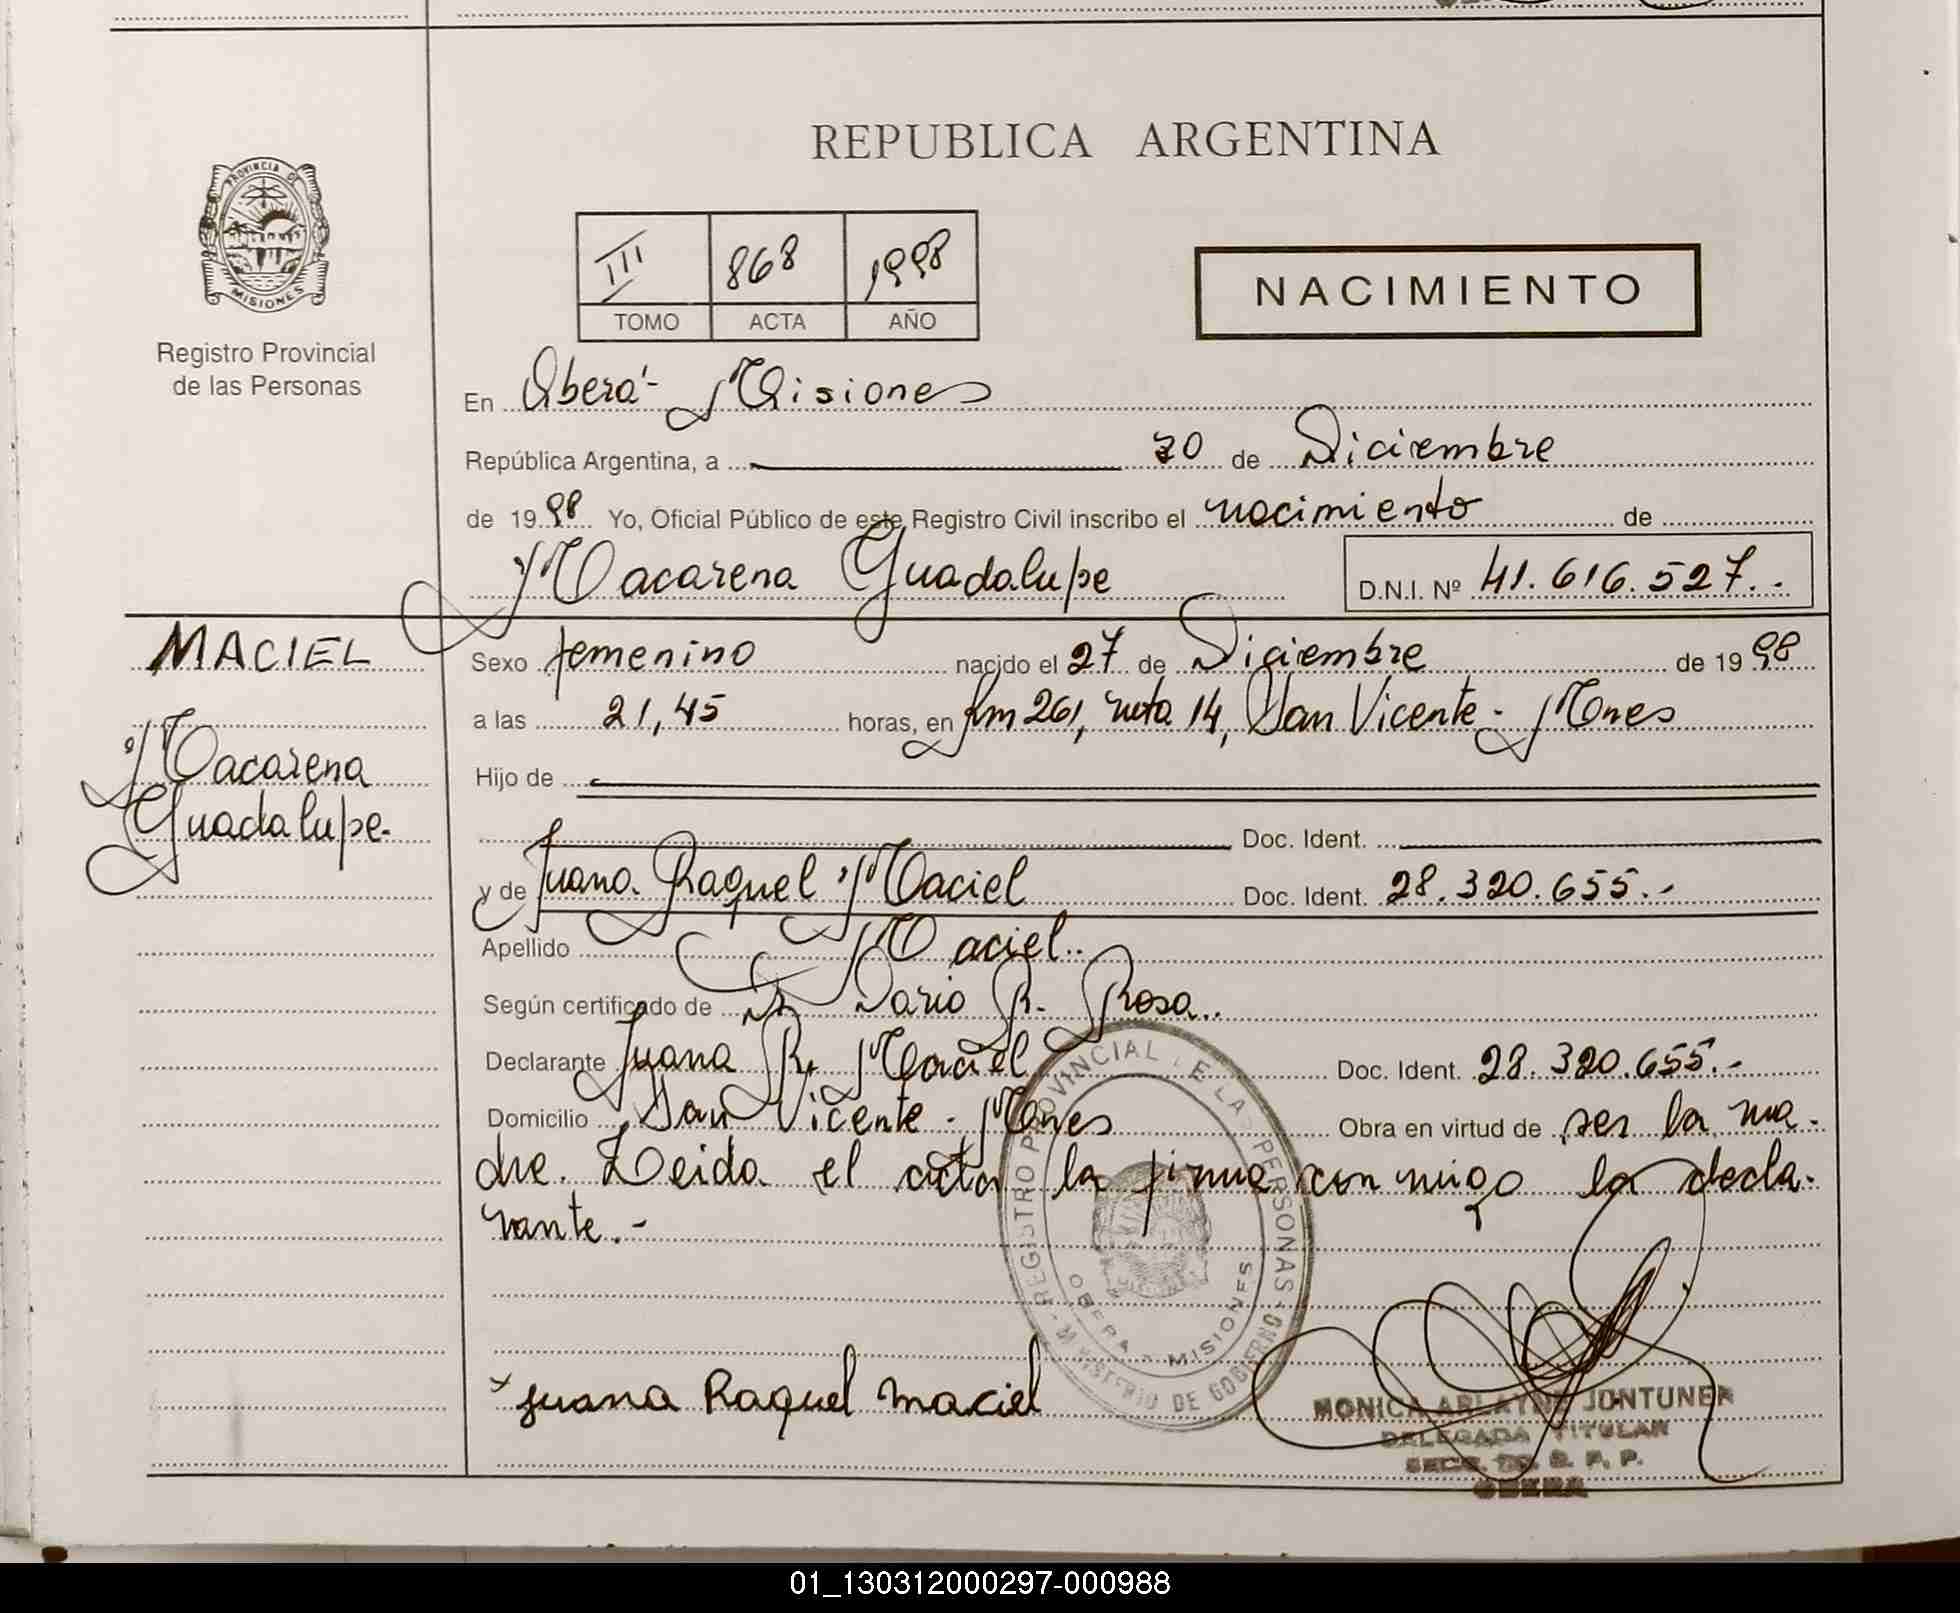 REPUBLICA ARGENTINA
PROVINCIA DE
MISIONES
Registro Provincial
de las Personas
III 868 1998
TOMO ACTA AÑO
NACIMIENTO
En Oberá - Misiones
República Argentina, a 30 de Diciembre
de 1998 Yo, Oficial Público de este Registro Civil inscribo el nacimiento de
Macarena Guadalupe D.N.I. Nº 41.616.527..
MACIEL
Macarena
Guadalupe.
Sexo femenino nacido el 27 de Diciembre de 1998
a las 21,45 horas, en Km 261, ruta 14, San Vicente - Mnes
Hijo de
Doc. Ident.
y de Juana Raquel Maciel Doc. Ident. 28.320.655.-
Apellido Maciel..
Según certificado de Dr. Dario R. Rosa..
Declarante Juana R. Maciel Doc. Ident. 28.320.655.-
Domicilio San Vicente - Mnes Obra en virtud de ser la ma-
dre. Leida el acta la firma conmigo la decla-
rante.-
REGISTRO PROVINCIAL DE LAS PERSONAS
MINISTERIO DE GOBIERNO
OBERA - MISIONES
Juana Raquel Maciel
MONICA ARLAYNE JONTUNER
DELEGADA TITULAR
OBERA
01_130312000297-000988